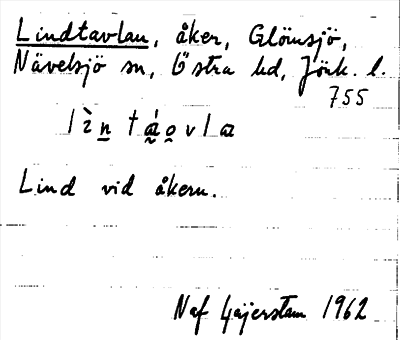 Lindtavlan, åker, Glömsjö,
Nävelsjö sn, Östra hd, Jönk. l.
755
Lind vid åkern.
Naf Gajerstam 1962